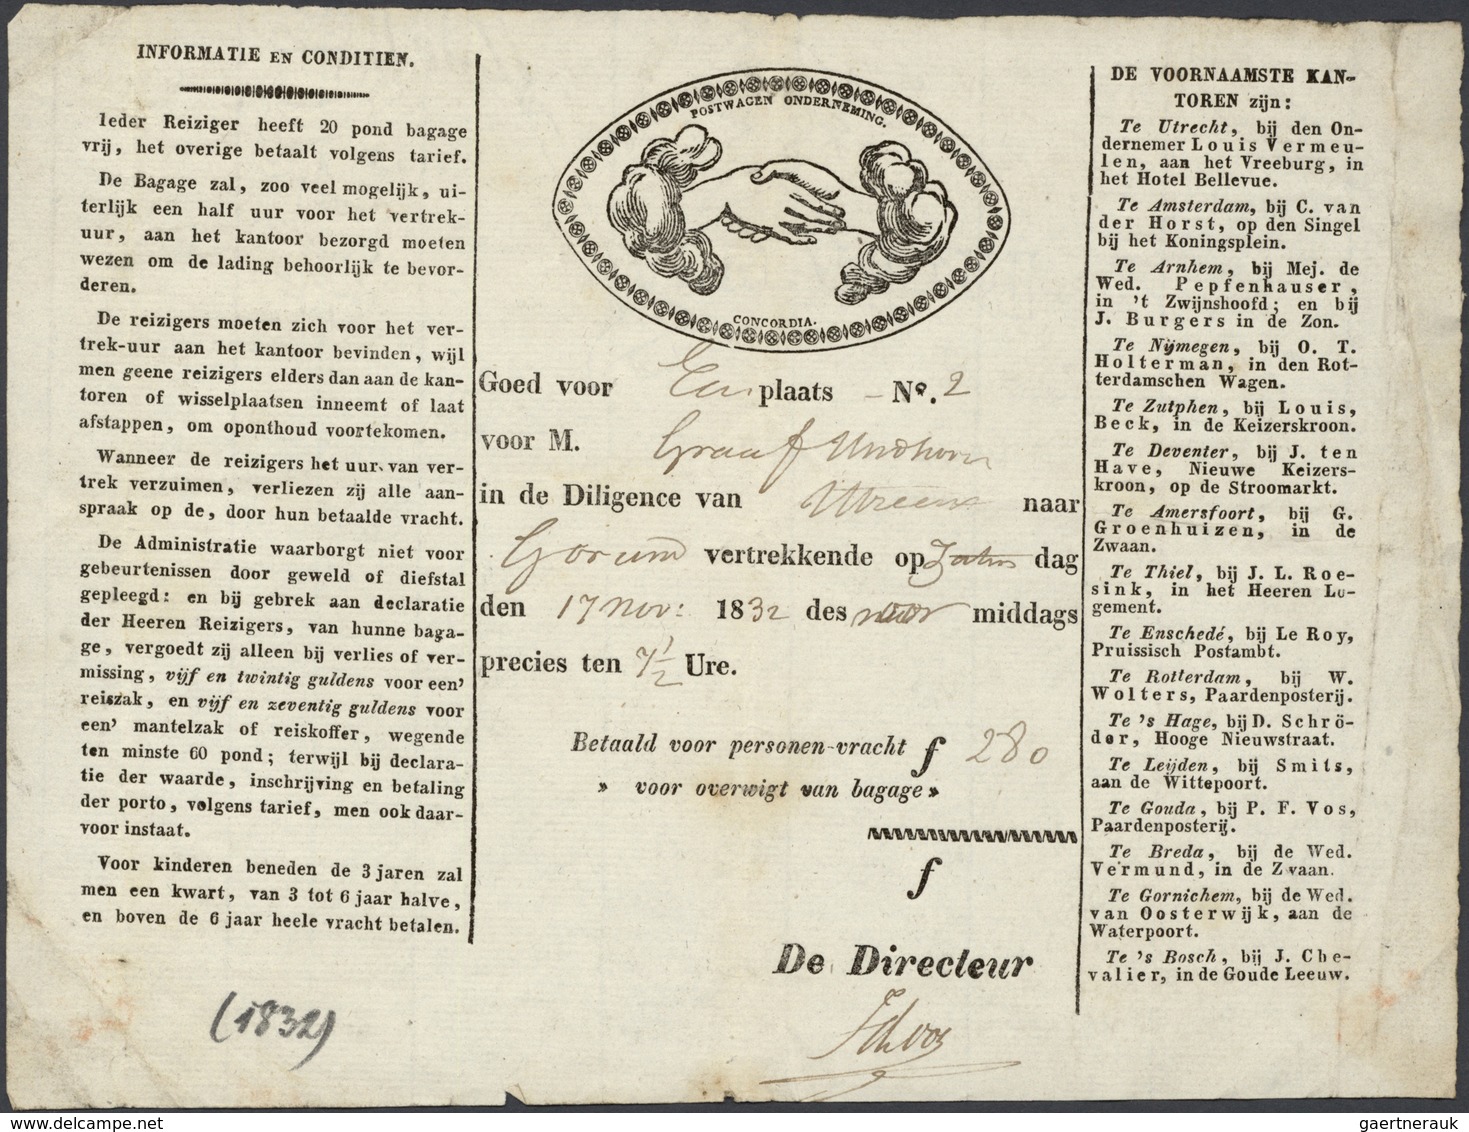 INFORMATIE EN CONDITIEN.
Ieder Reiziger heeft 20 pond bagage
vrij, het overige betaalt volgens tarief.
De Bagage zal, zoo veel mogelijk, ui-
terlijk een half uur voor het vertrek-
uur, aan het kantoor bezorgd moeten
wezen om de lading behoorlijk te bevor-
deren.
De reizigers moeten zich voor het ver-
trek-uur aan het kantoor bevinden, wijl
men geene reizigers elders dan aan de kan-
toren of wisselplaatsen inneemt of laat
afstappen, om oponthoud voortekomen.
Wanneer de reizigers het uur van ver-
trek verzuimen, verliezen zij alle aan-
spraak op de, door hun betaalde vracht.
De Administratie waarborgt niet voor
gebeurtenissen door geweld of diefstal
gepleegd: en bij gebrek aan declaratie
der Heeren Reizigers, van hunne baga-
ge, vergoedt zij alleen bij verlies of ver-
missing, vijf en twintig guldens voor een'
reiszak, en vijf en zeventig guldens voor
een' mantelzak of reiskoffer, wegende
ten minste 60 pond; terwijl bij declara-
tie der waarde, inschrijving en betaling
der porto, volgens tarief, men ook daar-
voor instaat.
Voor kinderen beneden de 3 jaren zal
men een kwart, van 3 tot 6 jaar halve,
en boven de 6 jaar heele vracht betalen.
(1832)
POSTWAGEN ONDERNEMING.
CONCORDIA.
Goed voor Een plaats - No. 2
voor M. Graaf
in de Diligence van naar
Gorcum vertrekkende op dag
den 17 nov: 1832 des voor middags
precies ten 7 1/2 Ure.
Betaald voor personen-vracht f 280
» voor overwigt van bagage »
f
De Directeur
DE VOORNAAMSTE KAN-
TOREN zijn:
Te Utrecht, bij den On-
dernemer Louis Vermeu-
len, aan het Vreeburg, in
het Hotel Bellevue.
Te Amsterdam, bij C. van
der Horst, op den Singel
bij het Koningsplein.
Te Arnhem, bij Mej. de
Wed. Pepfenhauser,
in 't Zwijnshoofd; en bij
J. Burgers in de Zon.
Te Nijmegen, bij O. T.
Holterman, in den Rot-
terdamschen Wagen.
Te Zutphen, bij Louis,
Beck, in de Keizerskroon.
Te Deventer, bij J. ten
Have, Nieuwe Keizers-
kroon, op de Stroomarkt.
Te Amersfoort, bij G.
Groenhuizen, in de
Zwaan.
Te Thiel, bij J. L. Roe-
sink, in het Heeren Lo-
gement.
Te Enschedé, bij Le Roy,
Pruissisch Postambt.
Te Rotterdam, bij W.
Wolters, Paardenposterij.
Te 's Hage, bij D. Schrö-
der, Hooge Nieuwstraat.
Te Leijden, bij Smits,
aan de Wittepoort.
Te Gouda, bij P. F. Vos,
Paardenposterij.
Te Breda, bij de Wed.
Vermund, in de Zwaan.
Te Gornichem, bij de Wed.
van Oosterwijk, aan de
Waterpoort.
Te 's Bosch, bij J. Che-
valier, in de Goude Leeuw.
gaertnerauk